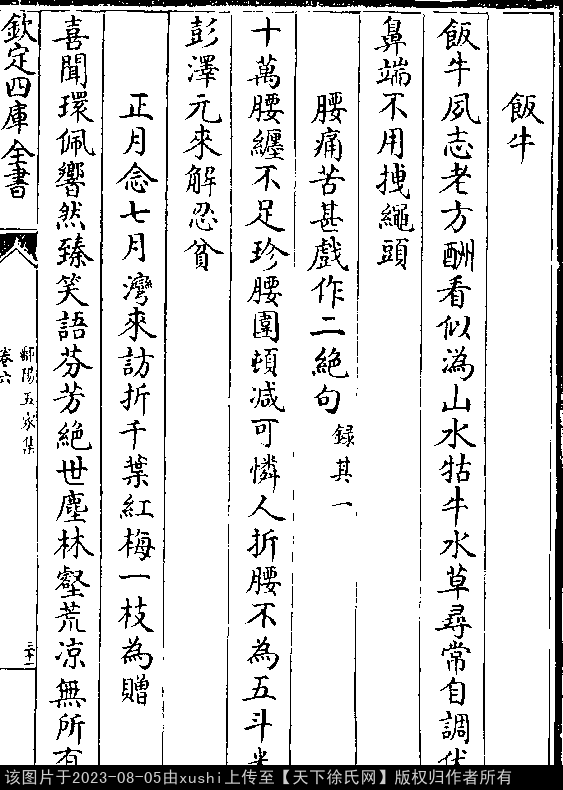 飯牛
飯牛夙志老方酬看似溈山水牯牛水草尋常自調伏
鼻端不用拽繩頭
腰痛苦甚戲作二絶句錄其一
十萬腰纏不足珍腰圍頓减可憐人折腰不為五斗米
彭澤元來解忍貧
正月念七月灣來訪折千葉紅梅一枝為贈
喜聞環佩響然臻笑語芬芳絶世塵林壑荒凉無所有
欽定四庫全書
師陽五家集
卷六
二十二
该图片于2023-08-05由xushi上传至【天下徐氏网】版权归作者所有